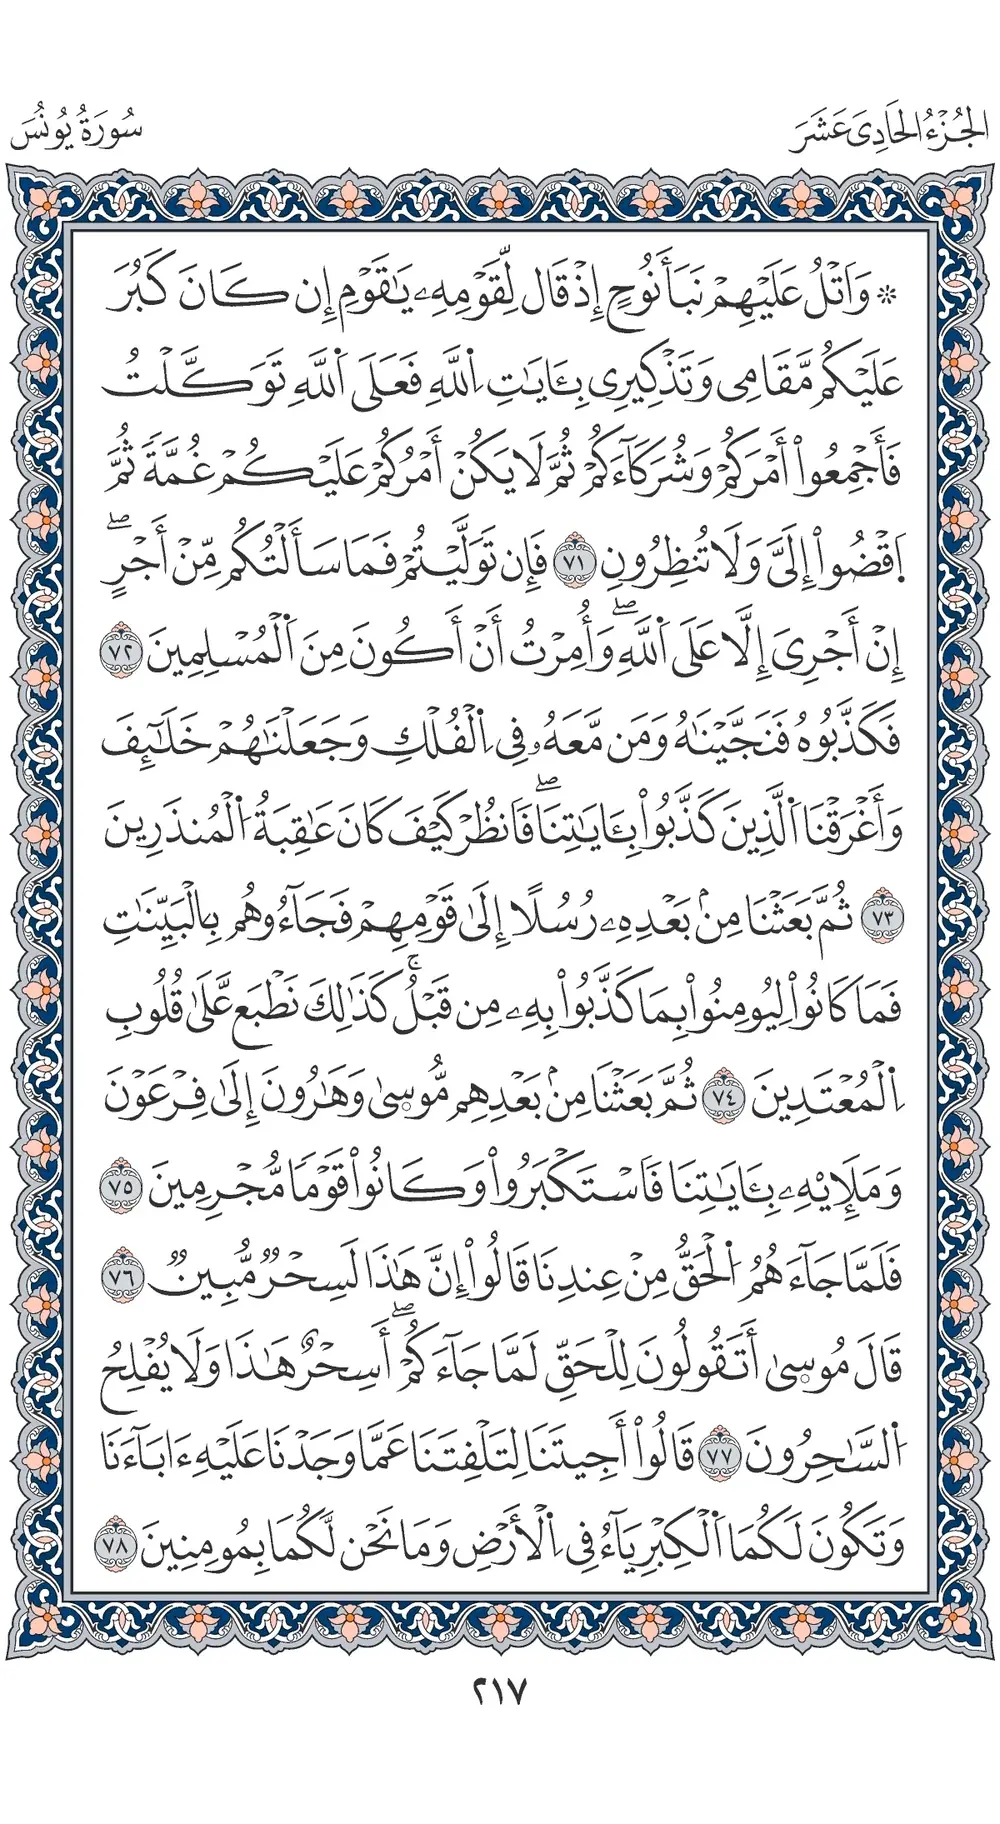 الجُزْءُ الحَادِىَ عَشَرَ
سُورَةُ يُونُسَ
۞ وَٱتْلُ عَلَيْهِمْ نَبَأَ نُوحٍ إِذْ قَال لِّقَوْمِهِۦ يَٰقَوْمِ إِن كَانَ كَبُرَ
عَلَيْكُم مَّقَامِى وَتَذْكِيرِى بِـَٔايَٰتِ ٱللَّهِ فَعَلَى ٱللَّهِ تَوَكَّلْتُ
فَأَجْمِعُوا۟ أَمْرَكُمْ وَشُرَكَآءَكُمْ ثُمَّ لَا يَكُنْ أَمْرُكُمْ عَلَيْكُمْ غُمَّةً ثُمَّ
ٱقْضُوا۟ إِلَىَّ وَلَا تُنظِرُونِ ٧١ فَإِن تَوَلَّيْتُمْ فَمَا سَأَلْتُكُم مِّنْ أَجْرٍۖ
إِنْ أَجْرِىَ إِلَّا عَلَى ٱللَّهِۖ وَأُمِرْتُ أَنْ أَكُونَ مِنَ ٱلْمُسْلِمِينَ ٧٢
فَكَذَّبُوهُ فَنَجَّيْنَٰهُ وَمَن مَّعَهُۥ فِى ٱلْفُلْكِ وَجَعَلْنَٰهُمْ خَلَٰٓئِفَ
وَأَغْرَقْنَا ٱلَّذِينَ كَذَّبُوا۟ بِـَٔايَٰتِنَاۖ فَٱنظُرْ كَيْفَ كَانَ عَٰقِبَةُ ٱلْمُنذَرِينَ
٧٣ ثُمَّ بَعَثْنَا مِنۢ بَعْدِهِۦ رُسُلًا إِلَىٰ قَوْمِهِمْ فَجَآءُوهُم بِٱلْبَيِّنَٰتِ
فَمَا كَانُوا۟ لِيُومِنُوا۟ بِمَا كَذَّبُوا۟ بِهِۦ مِن قَبْلُۚ كَذَٰلِكَ نَطْبَع عَّلَىٰ قُلُوبِ
ٱلْمُعْتَدِينَ ٧٤ ثُمَّ بَعَثْنَا مِنۢ بَعْدِهِم مُّوسِىٰ وَهَٰرُونَ إِلَىٰ فِرْعَوْنَ
وَمَلَإِيْهِۦ بِـَٔايَٰتِنَا فَٱسْتَكْبَرُوا۟ وَكَانُوا۟ قَوْمًا مُّجْرِمِينَ ٧٥
فَلَمَّا جَآءَهُمُ ٱلْحَقُّ مِنْ عِندِنَا قَالُوا۟ إِنَّ هَٰذَا لَسِحْرٌ مُّبِينٌ ٧٦
قَالَ مُوسِىٰ أَتَقُولُونَ لِلْحَقِّ لَمَّا جَآءَكُمْۖ أَسِحْرٌ هَٰذَا وَلَا يُفْلِحُ
ٱلسَّٰحِرُونَ ٧٧ قَالُوا۟ أَجِيتَنَا لِتَلْفِتَنَا عَمَّا وَجَدْنَا عَلَيْهِ ءَابَآءَنَا
وَتَكُونَ لَكُمَا ٱلْكِبْرِيَآءُ فِى ٱلْأَرْضِ وَمَا نَحْن لَّكُمَا بِمُومِنِينَ ٧٨
٢١٧